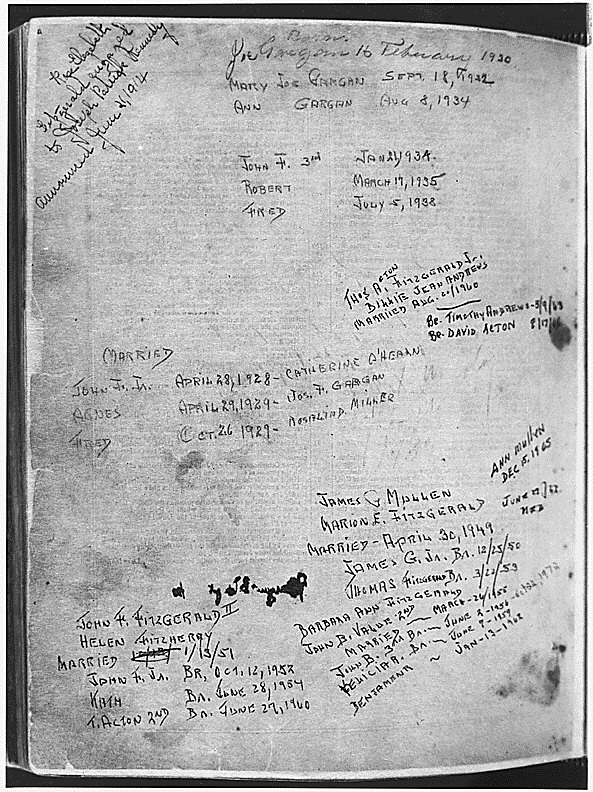 Rose Elizabeth
Fitzgerald engaged
to Joseph Patrick Kennedy
announced June 21, 1914
Born.
Joe Gargan 16 February 1930
MARY JOE GARGAN SEPT. 18, 1932
ANN GARGAN AUG 8, 1934
JOHN F. 3rd JAN 21, 1934.
ROBERT MARCH 17, 1935
FRED JULY 5, 1938
THOS ACTON FITZGERALD JR.
BILLIE JEAN ANDREWS
MARRIED AUG. 1960
BR. TIMOTHY ANDREWS - 5/9/63
BR. DAVID ACTON
MARRIED
JOHN F. JR. APRIL 28, 1928 - CATHERINE O'HEARN
AGNES APRIL 29, 1929 - JOS. F. GARGAN
FRED OCT. 26 1929 - ROSALIND MILLER
ANN MULLEN
DEC 8, 1965
JAMES G MULLEN
MARION E. FITZGERALD
MARRIED - APRIL 30, 1949
JAMES G. JR. BR. 12/25/50
THOMAS FITZGERALD BR. 3/22/53
BARBARA ANN FITZGERALD
JOHN B. VALUE 2ND
MARRIED - MARCH - 1955
JOHN B. 3RD BR. - JUNE 1956
FELICIA R. BR. - JUNE 9 - 1959
BENJAMEN ~ JAN - 13 - 1962
JOHN F. FITZGERALD II
HELEN FITZHENRY
MARRIED 1/13/51
JOHN F. JR. BR, OCT. 12, 1952
KATH BR. JUNE 28, 1954
T. ACTON 2ND BR. JUNE 27, 1960